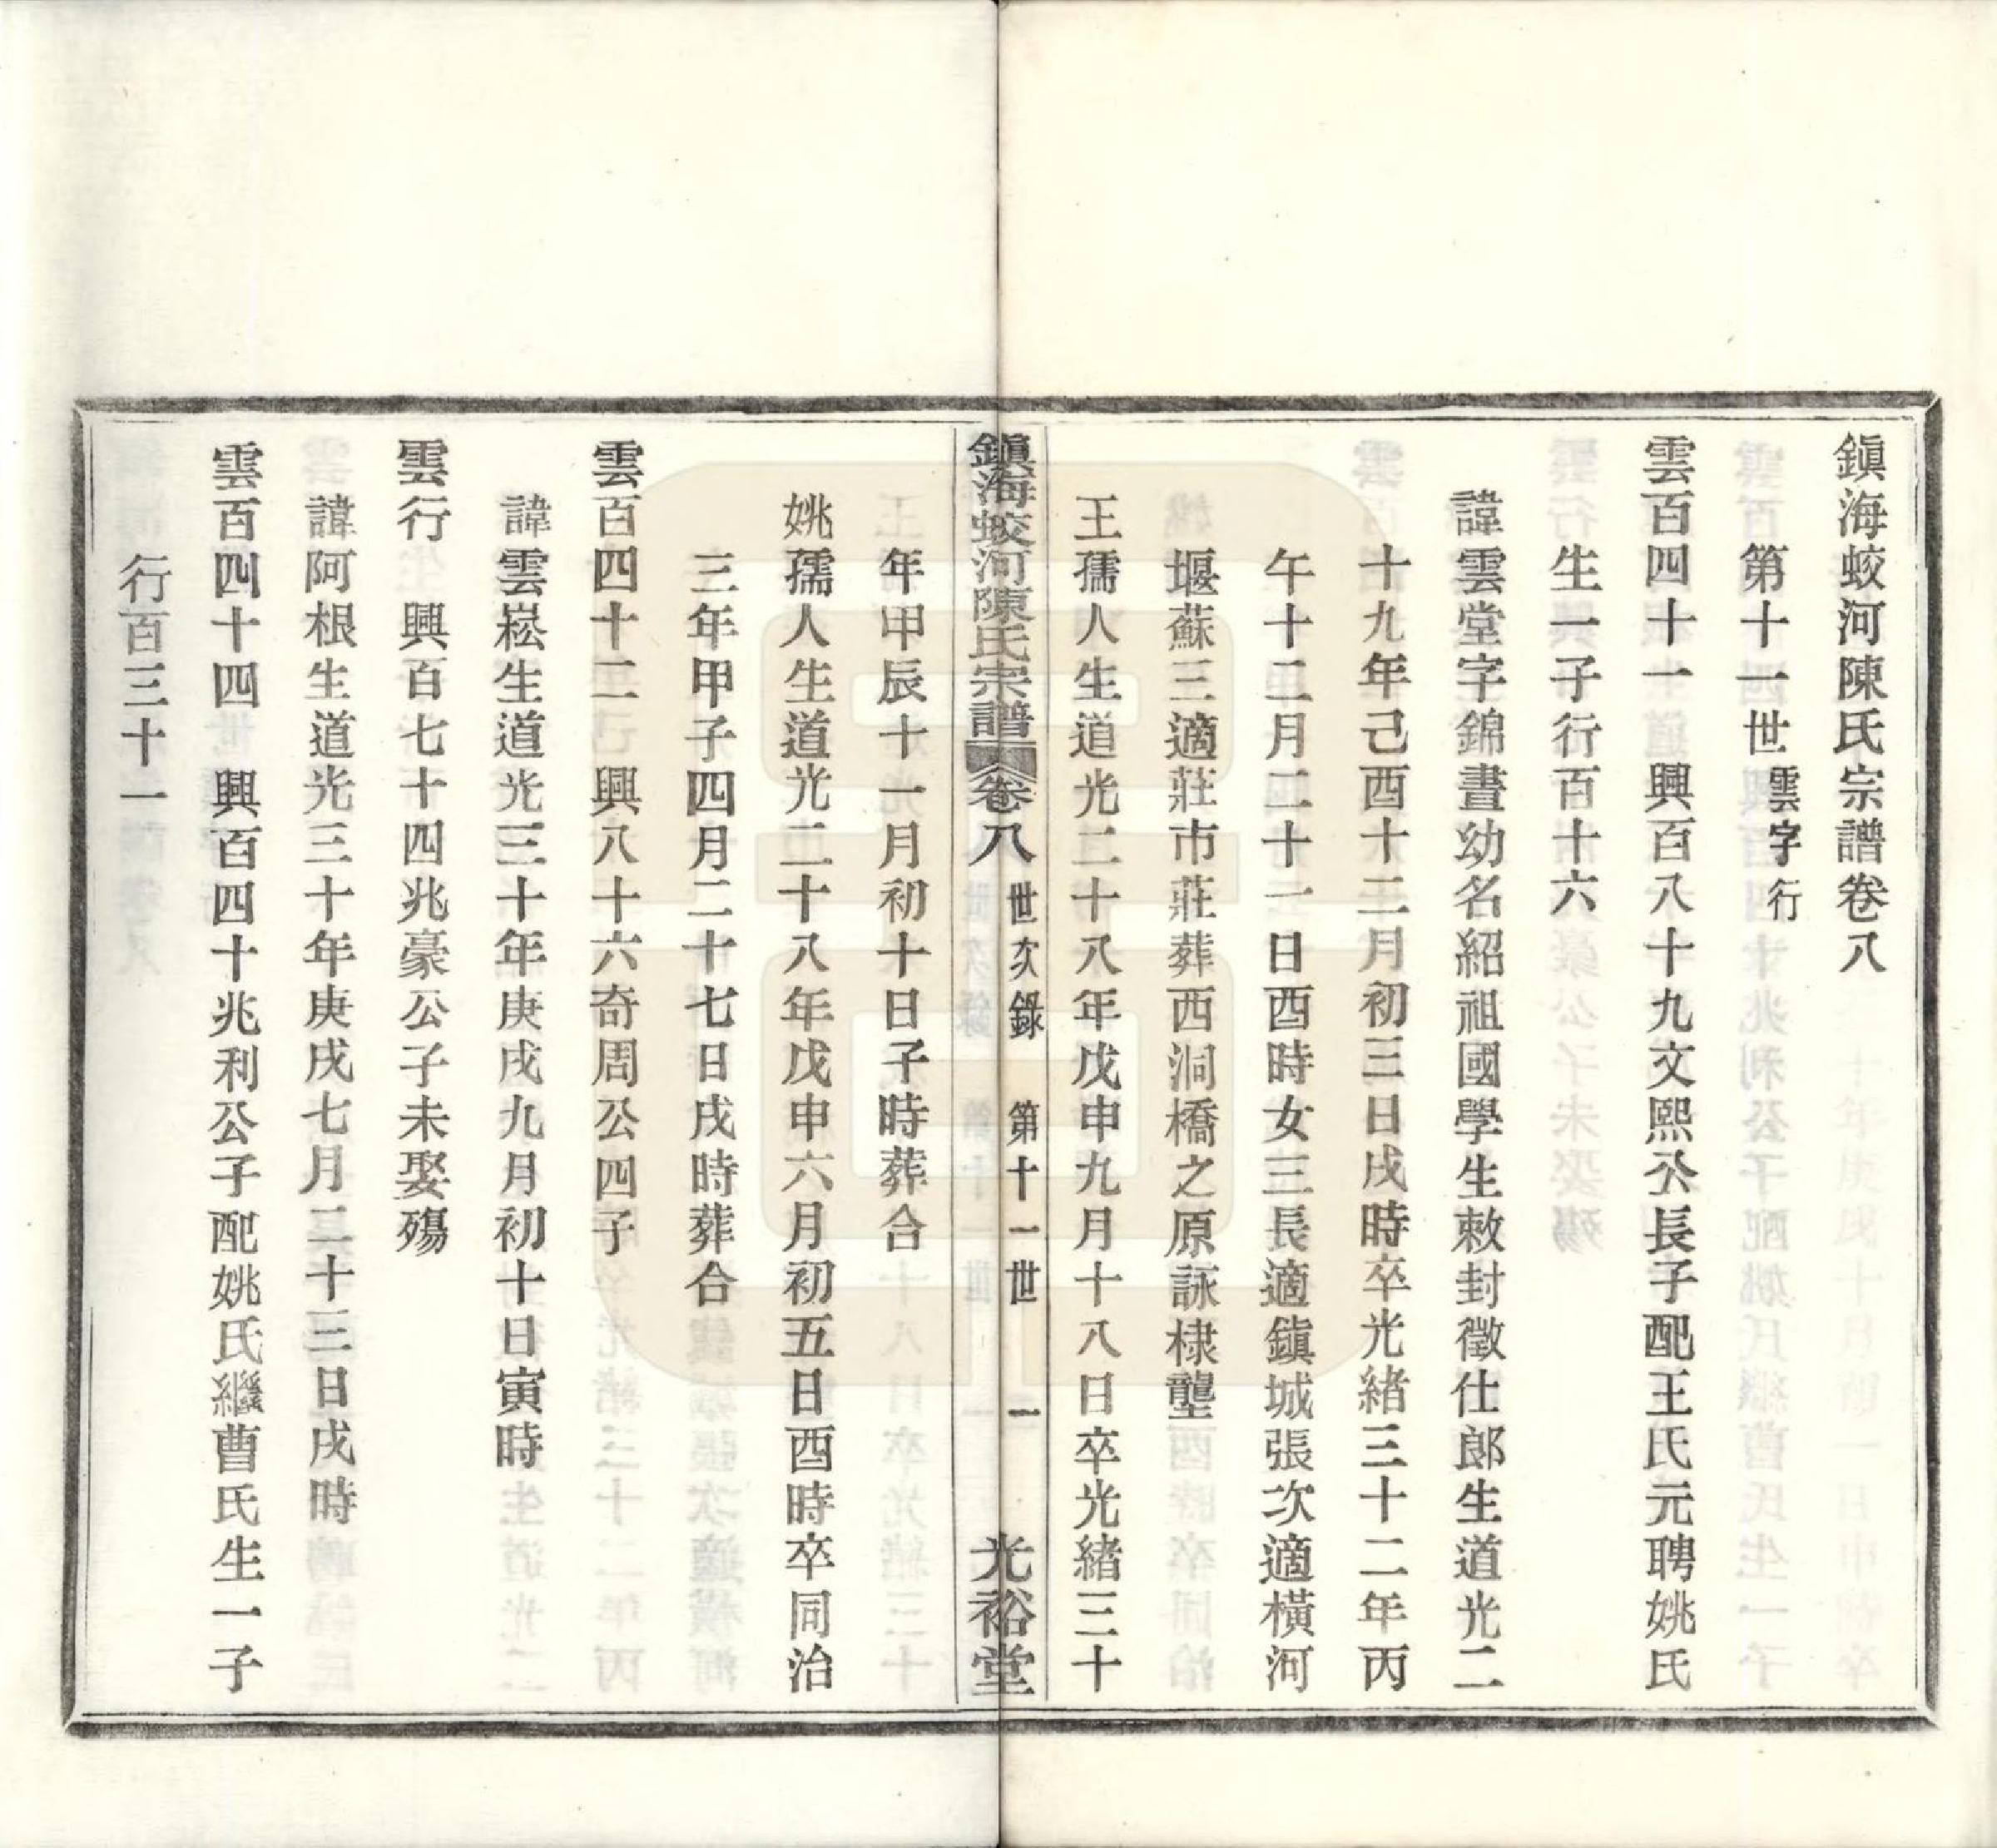 鎮海蛟河陳氏宗譜卷八
第十一世雲字行
雲百四十一　興百八十九文熙公長子配王氏元聘姚氏
生一子行百十六
諱雲堂字錦晝幼名紹祖國學生敕封徵仕郎生道光二
十九年己酉十二月初三日戌時卒光緒三十二年丙
午十二月二十一日酉時女三長適鎮城張次適橫河
堰蘇三適莊市莊葬西洞橋之原詠棣壟
王孺人生道光二十八年戊申九月十八日卒光緒三十
鎮海蛟河陳氏宗譜　卷八　世次錄　第十一世　一　光裕堂
年甲辰十一月初十日子時葬合
姚孺人生道光二十八年戊申六月初五日酉時卒同治
三年甲子四月二十七日戌時葬合
雲百四十二　興八十六奇周公四子
諱雲崧生道光三十年庚戌九月初十日寅時
雲行　興百七十四兆豪公子未娶殤
諱阿根生道光三十年庚戌七月二十三日戌時
雲百四十四　興百四十兆利公子配姚氏繼曹氏生一子
行百三十一